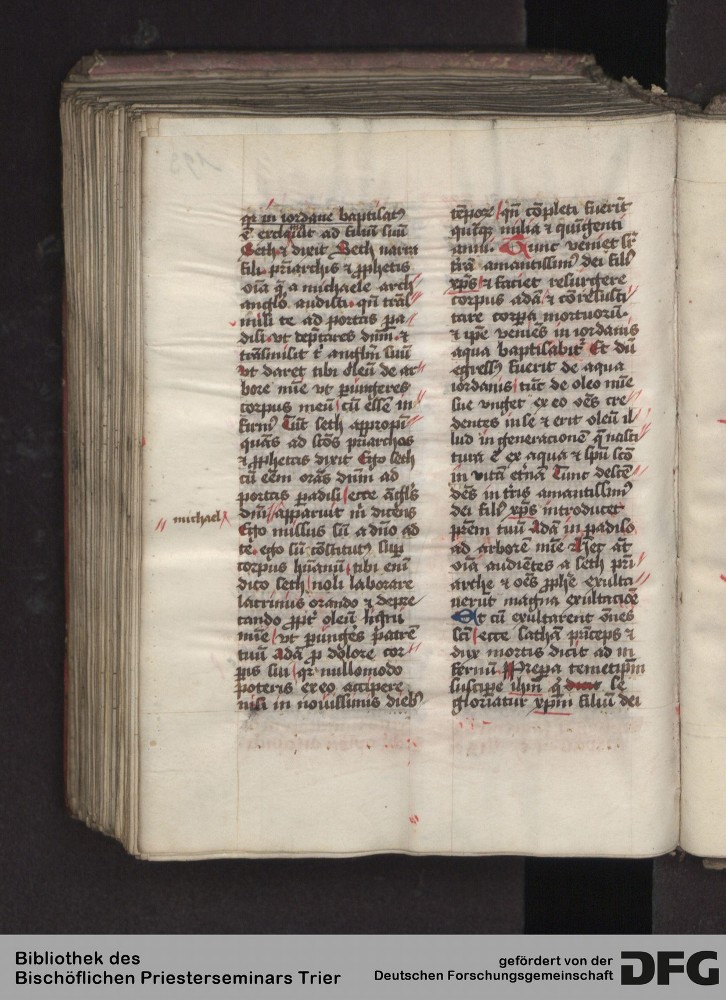 qr in iordane baptisatꝰ
ē exclamauit ad filiū suū
Seth ⁊ dixit Seth narra
filiis priarchis ⁊ ꝓphetis
oīa q̄ a michaele arch
anglo audisti qn̄ trās
misi te ad portas pa
disi vt dep̄cares dnm̄ ⁊
trāsmisit t anglm̄ suū
vt daret tibi oleū de ar
bore mīe vt pungeres
corpus meū cū essē in
firmꝰ Tūc seth appropin
quās ad scōs priarchas
⁊ ꝓphetas dixit Ego seth
cū eēm orās dnm̄ ad
portas padisi ecce āglꝰs
dnī apparuit m dicens
michael
Ego missus sū a dno ad
te ego sū cōstitutꝰ suꝑ
corpus hūanū tibi enī
dico seth noli laborare
lacrimis orando ⁊ depre
cando ꝓpt oleū ligni
mīe vt pungēs patrē
tuū adā ꝓ dolore cor
pis sui qr nullomodo
poteris ex eo accipere
nisi in nouissimis diebꝰ
tēpore qn̄ cōpleti fuerīt
quīqꝫ milia ⁊ quīgenti
anni. Tunc veniet sr
trā amantissimꝰ dei filꝰ
xp̄s ⁊ faciet resurgere
corpus adā ⁊ cōresusci
tare corpa mortuorū
⁊ ipe venies in iordanis
aqua baptisabit Et dū
egressꝰ fuerit de aqua
iordanis tūc de oleo mīe
sue vnget ex eo oēs cre
dentes in se ⁊ erit oleū il
lud in generacionē q̄ nasci
tura ē ex aqua ⁊ spū scō
in vitā etnā Tunc descē
dēs in tris amantissimꝰ
dei filꝰ xp̄s introducet
prēm tuū Adā in padiso
ad arborē mīe Hec āt
oīa audientes a seth pri
arche ⁊ oēs ꝓphe exulta
uerūt magna exultaciōe
Et cū exultarent ōnes
scī ecce sathan prīceps ⁊
dux mortis dicit ad in
fernū Prepa temetipm
suscipe ihm q se
gloriatur xp̄m filiū dei
Bibliothek des
Bischöflichen Priesterseminars Trier
gefördert von der
Deutschen Forschungsgemeinschaft
DFG